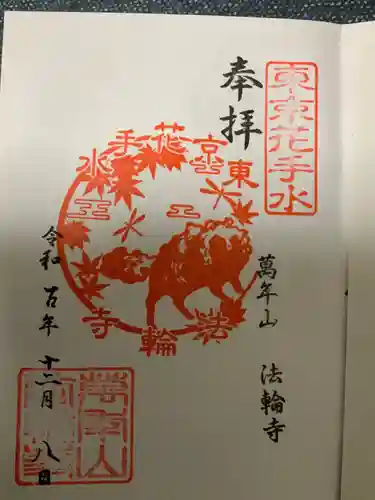 東京花手水
奉拝
萬年山 法輪寺
東京花手水
法輪寺
令和 五年 十二月 八日
萬年山